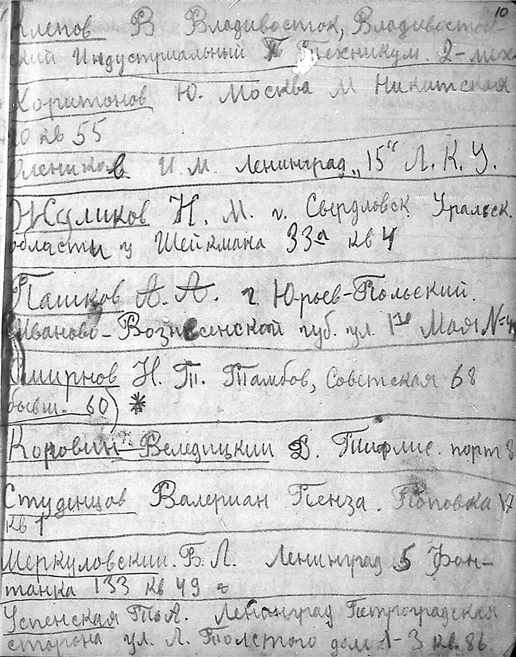 10
Клепов В Владивосток, Владивосток-
ский Индустриальный Техникум. 2-мех
Харитонов Ю. Москва М Никитская
кв 55
Олейников И. М. Ленинград "15" Л. К. У.
Жуликов Н. М. г. Свердловск Уральск.
области у Шейкмана 33а кв 4
Пашков А. А. г. Юрьев-Польский.
Иваново-Вознесенской губ. ул. 1го Мая №
Смирнов Н. Т. Тамбов, Советская 68
бывш. 60) *
Коровин-Веледицкий В. Тифлис. порт
Студенцов Валериан Пенза. Поповка
кв 1
Меркуловский. Б. Л. Ленинград 5 Фон-
танка 133 кв 49
Успенская Т. А. Ленинград Петроградская
сторона ул. Л. Толстого дом 1-3 кв. 86